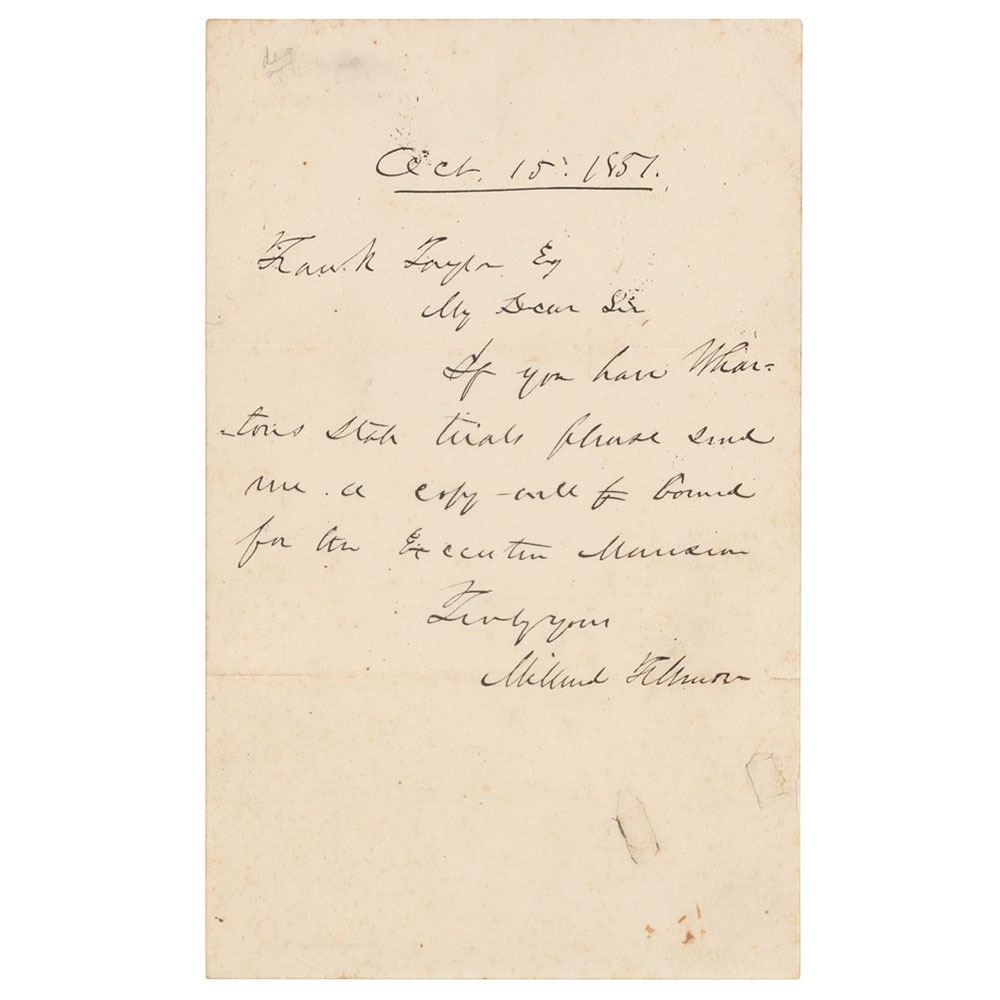 Oct. 15. 1851.
Frank Taylor Esq
My Dear Sir,
If you have Whar=
-ton's State trials please send
me a copy - well bound
for the Executive Mansion
Truly yours
Millard Fillmore